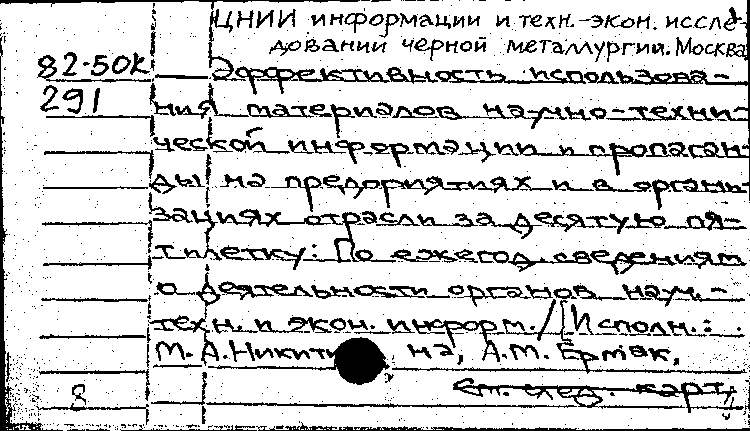 ЦНИИ информации и техн.-экон. иссле-
довании черной металлургии. Москва
82-50к Эффективность использова-
291 ния материалов научно-техни-
ческой информации и пропаган-
ды на предприятиях и в органи
зациях отрасли за десятую пя-
тилетку: По ежегод. сведениям
о деятельности органов науч.-
техн. и экон. информ./ [Исполн.:
М. А. Никитина, А.М. Ермак,
8 См. след. карт.